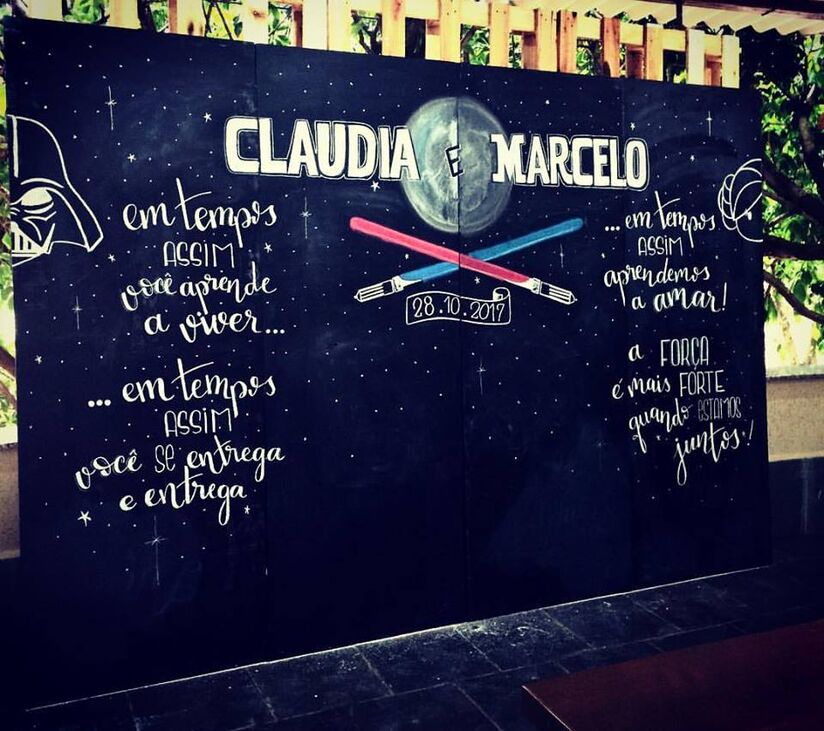 CLAUDIA E MARCELO
28.10.2017
em tempos
ASSIM
você aprende
a viver...
... em tempos
ASSIM
você SE entrega
e entrega
...em tempos
ASSIM
aprendemos
a amar!
a FORÇA
é mais FORTE
quando ESTAMOS
juntos!